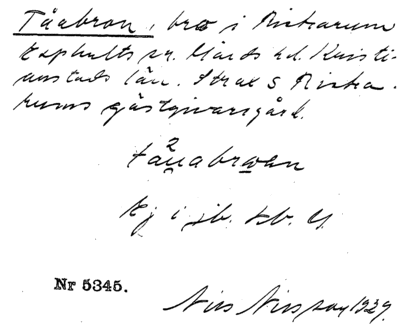 Tåabron, bro i Rickarum
Esphults sn. Gärds hd. Kristi-
anstads län. Strax S Ricka-
rums gästgivaregård.
2
tåuabrωen
Ej i jb. kb. G.
Nr 5345.
Nils Nilsson 1929.